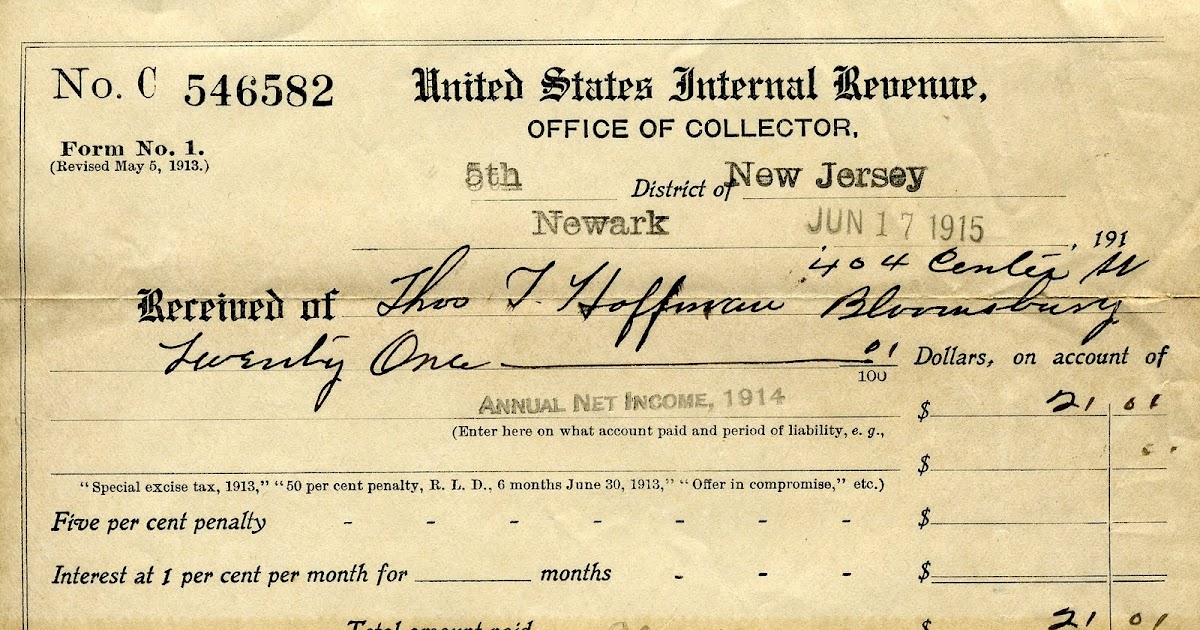 No. C 546582
United States Internal Revenue,
OFFICE OF COLLECTOR,
Form No. 1.
(Revised May 5, 1913.)
5th District of New Jersey
Newark JUN 17 1915, 191
404 Center St
Received of Thos T. Hoffman Bloomsbury
Twenty One 01/100 Dollars, on account of
ANNUAL NET INCOME, 1914 $ 21 01
(Enter here on what account paid and period of liability, e. g.,
$
"Special excise tax, 1913," "50 per cent penalty, R. L. D., 6 months June 30, 1913," "Offer in compromise," etc.)
Five per cent penalty - - - - - - - $
Interest at 1 per cent per month for ______ months - - - $
Total amount paid $ 21 01